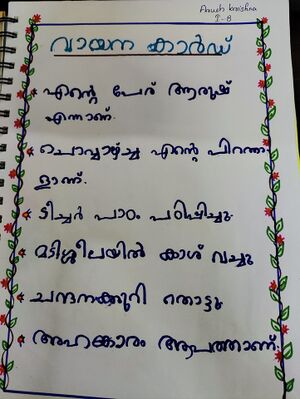 Arush krishna
I-B
വായന കാർഡ്
എന്റെ പേര് ആരുഷ്
എന്നാണ്.
ചൊവ്വാഴ്ച്ച എന്റെ പിറന്നാ
ളാണ്.
ടീച്ചർ പാഠം പഠിപ്പിച്ചു.
മടിശ്ശീലയിൽ കാശ് വച്ചു
ചന്ദനക്കുറി തൊട്ടു
അഹങ്കാരം ആപത്താണ്.